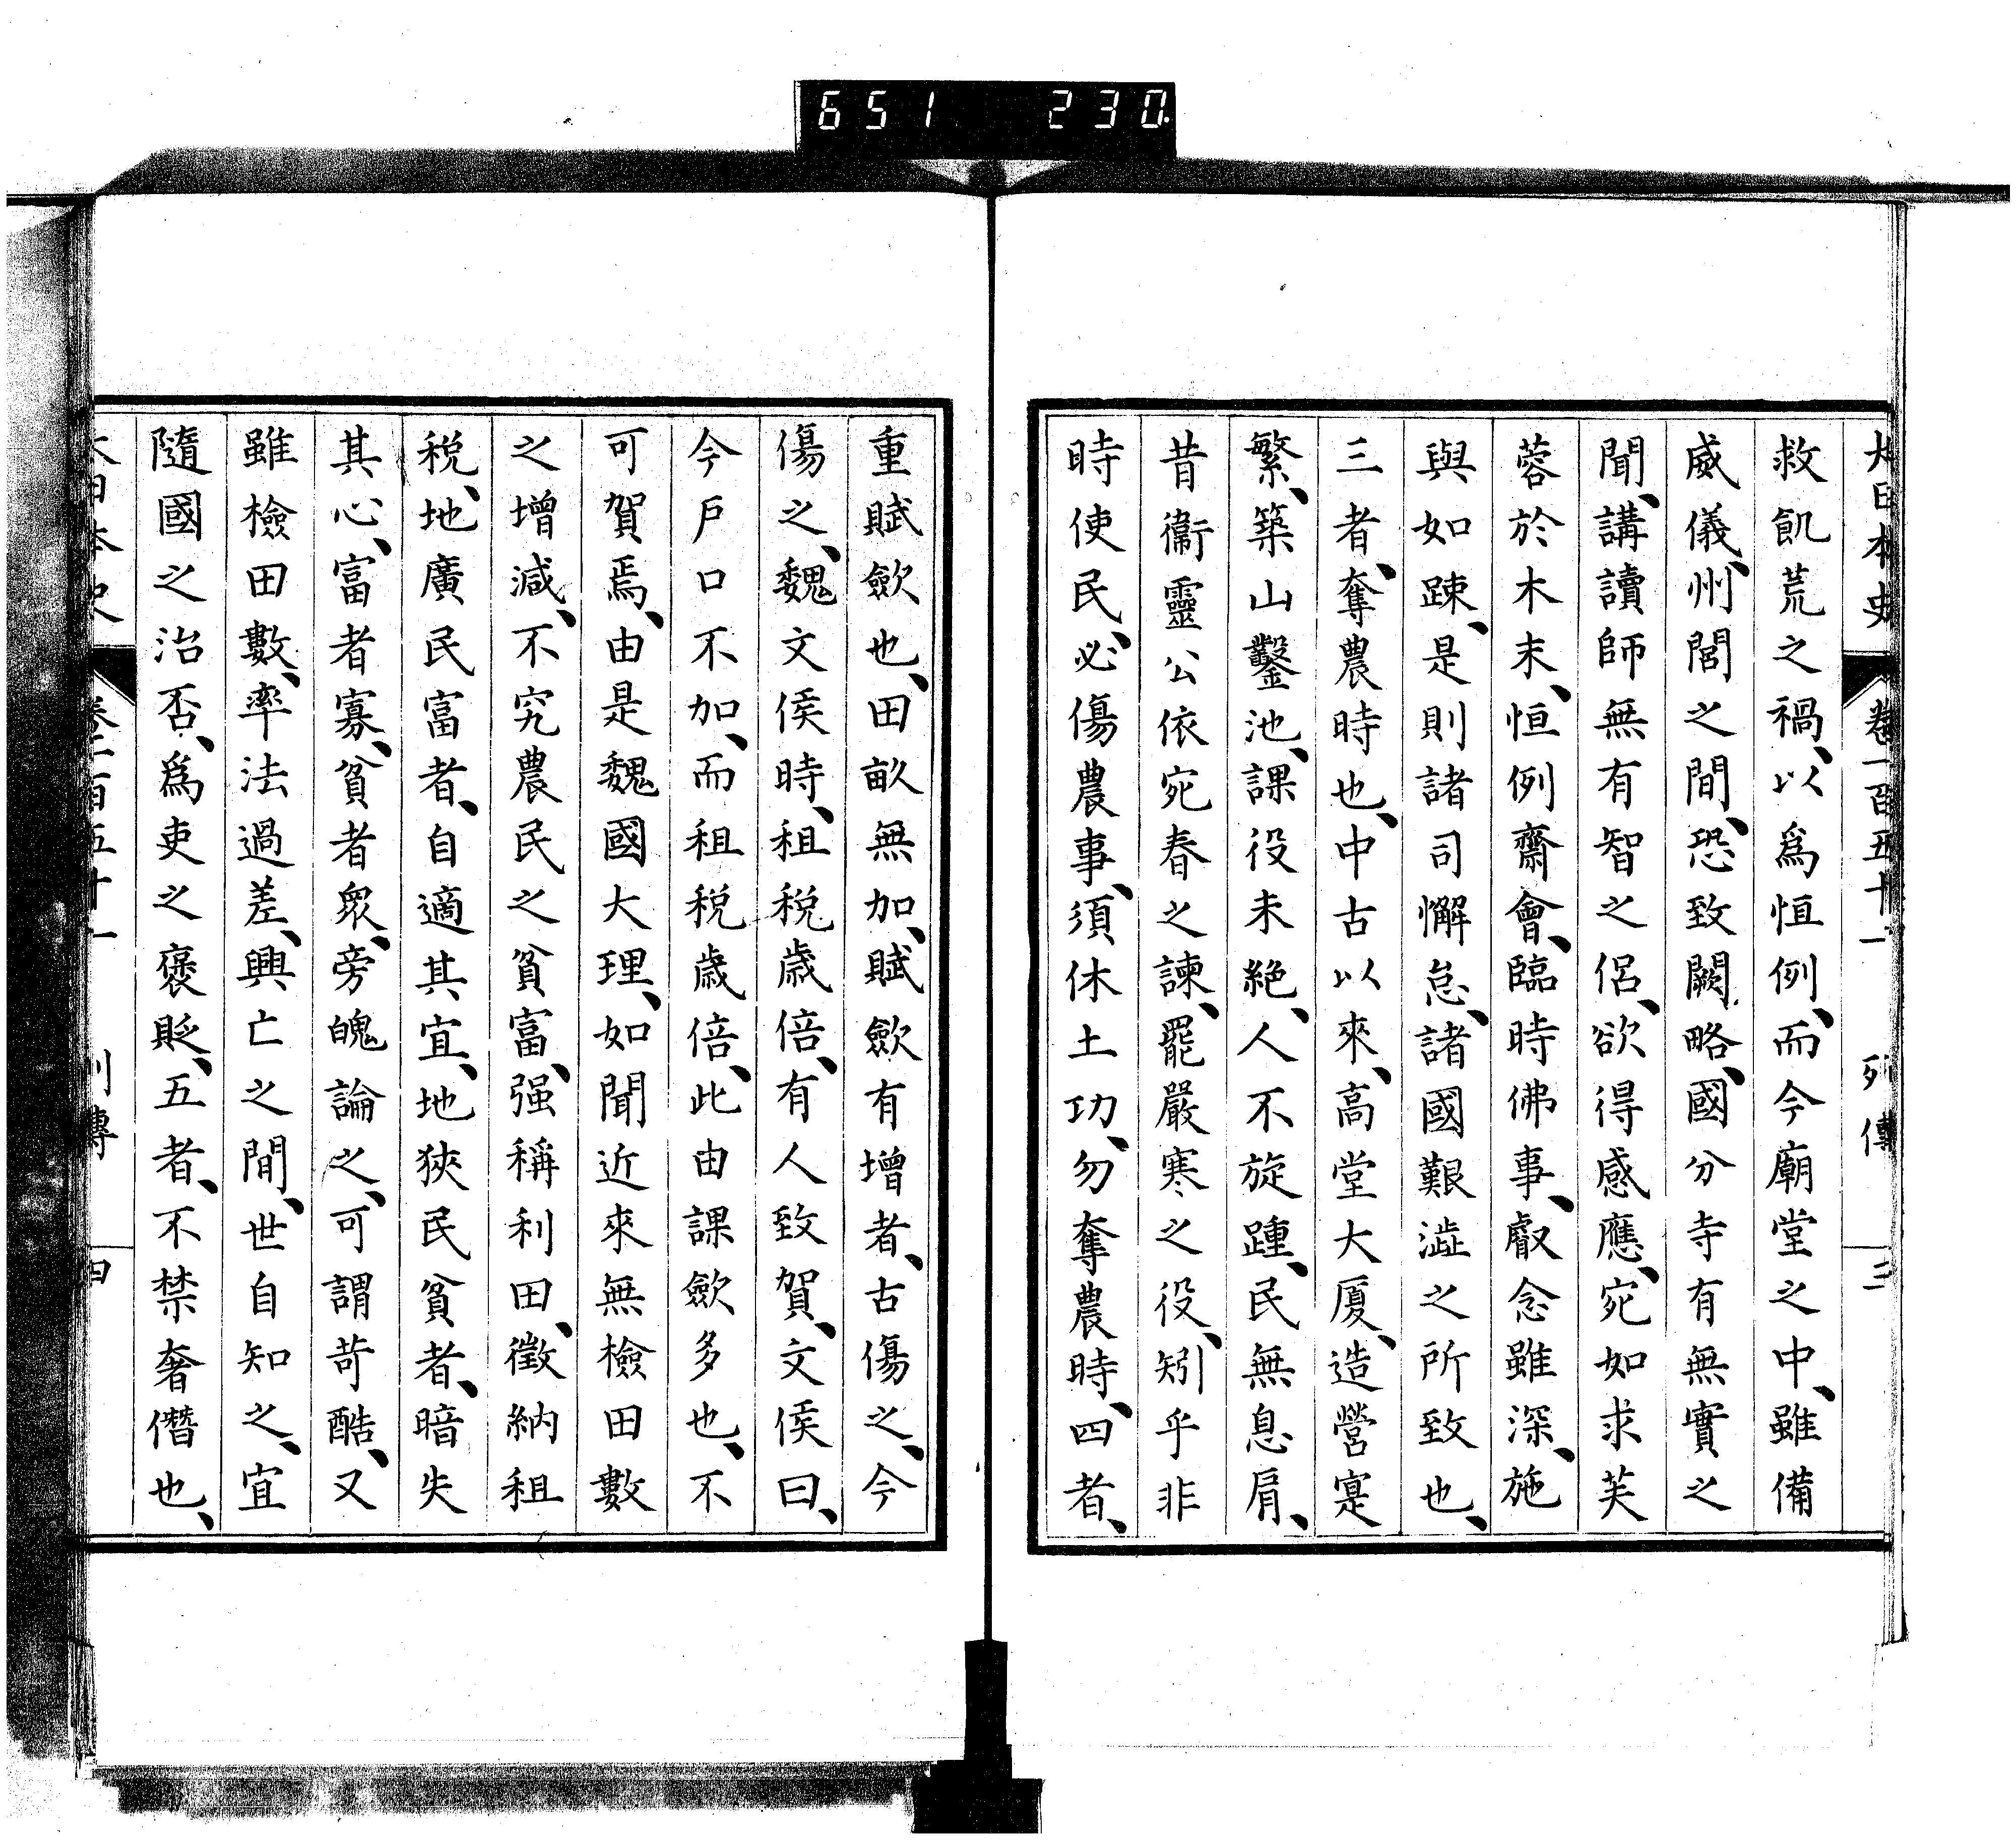 651 230
大日本史 卷一百五十一 列傳 三
救飢荒之禍、以爲恒例、而今廟堂之中、雖備
威儀、州閭之間、恐致闕略、國分寺有無實之
聞、講讀師無有智之侶、欲得感應、宛如求芙
蓉於木末、恒例齋會、臨時佛事、叡念雖深、施
與如踈、是則諸司懈怠、諸國艱澁之所致也、
三者、奪農時也、中古以來、高堂大厦、造營寔
繁、築山鑿池、課役未絶、人不旋踵、民無息肩、
昔衞靈公依宛春之諫、罷嚴寒之役、矧乎非
時使民、必傷農事、須休土功、勿奪農時、四者、
重賦斂也、田畝無加、賦斂有增者、古傷之、今
傷之、魏文侯時、租税歳倍、有人致賀、文侯曰、
今戶口不加、而租税歳倍、此由課斂多也、不
可賀焉、由是魏國大理、如聞近來無檢田數
之增減、不究農民之貧富、强稱利田、徵納租
税、地廣民富者、自適其宜、地狹民貧者、暗失
其心、富者寡、貧者眾、旁魄論之、可謂苛酷、又
雖檢田數、率法過差、興亡之間、世自知之、宜
隨國之治否、爲吏之褒貶、五者、不禁奢僭也、
大日本史 卷一百五十一 列傳 四